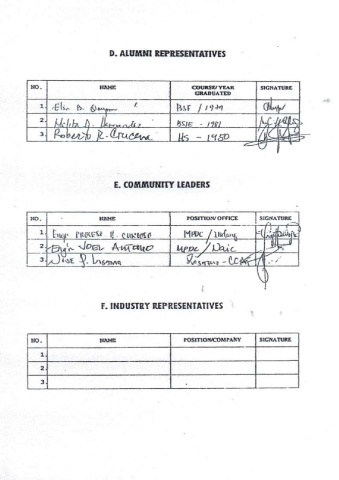 D. ALUMNI REPRESENTATIVES
NO. NAME COURSE/YEAR GRADUATED SIGNATURE
1. Elsa D. BSF / 1979
2. Melita D. Hernandez BSIE - 1981
3. Roberto R. Crucena HS - 1960
E. COMMUNITY LEADERS
NO. NAME POSITION/OFFICE SIGNATURE
1. Engr. MPDC / Indang
2. Engr JOEL ANTONIO MPDC / Naic
3. Jose P. Lisama Rosario - CCAT
F. INDUSTRY REPRESENTATIVES
NO. NAME POSITION/COMPANY SIGNATURE
1.
2.
3.